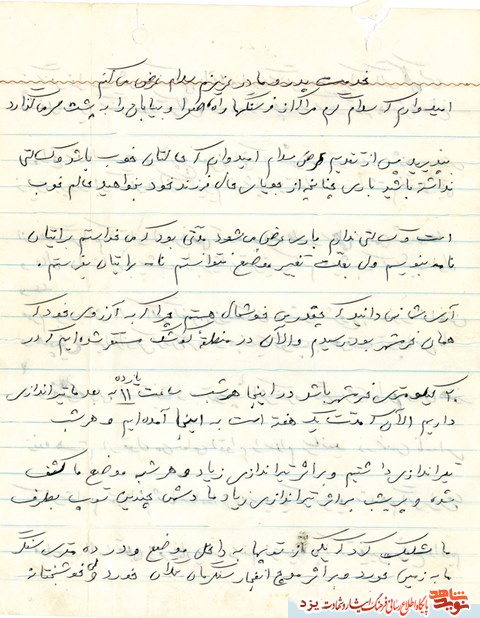 خدمت پدر و مادر عزیزم سلام عرض می کنم
امیدوارم که سلام گرم مرا که از فرسنگها راه صحرا و بیابان را به پشت سر می گذارد
بپذیرید پس از تقدیم عرض سلام امیدوارم که حالتان خوب باشد و کسالتی
نداشته باشید باری چنانچه از جویای حال فرزند خود بخواهید حالم خوب
است و کسالتی ندارم باری عرض می شود مدتی بود که می خواستم برایتان
نامه بنویسم ولی بعلت تغییر موضع نتوانستم نامه برایتان بفرستم.
آری شما نمی دانید که چقدر من خوشحال هستم چرا که به آرزوی خود که
همان خرمشهر بود رسیدم و الآن در منطقه کوشک مستقر شده ایم که در
۲۰ کیلومتری خرمشهر باشد در اینجا هر شب ساعت ۱۱ یازده به بعد ما تیراندازی
داریم الآن که مدت یک هفته است به اینجا آمده ایم و هر شب
تیراندازی داشتیم و بر اثر تیراندازی زیاد و هر شبه موضع ما کشف
شده و پریشب بر اثر تیراندازی زیاد ما دشمن چندین توپ بطرف
ما شلیک کرد که یکی از توپها به داخل موضع و در ده متری سنگر
ما به زمین خورد و بر اثر موج انفجار سنگرمان تکان خورد ولی خوشبختانه
نوید شاهد
پایگاه اطلاع رسانی فرهنگ ایثار و شهادت یزد